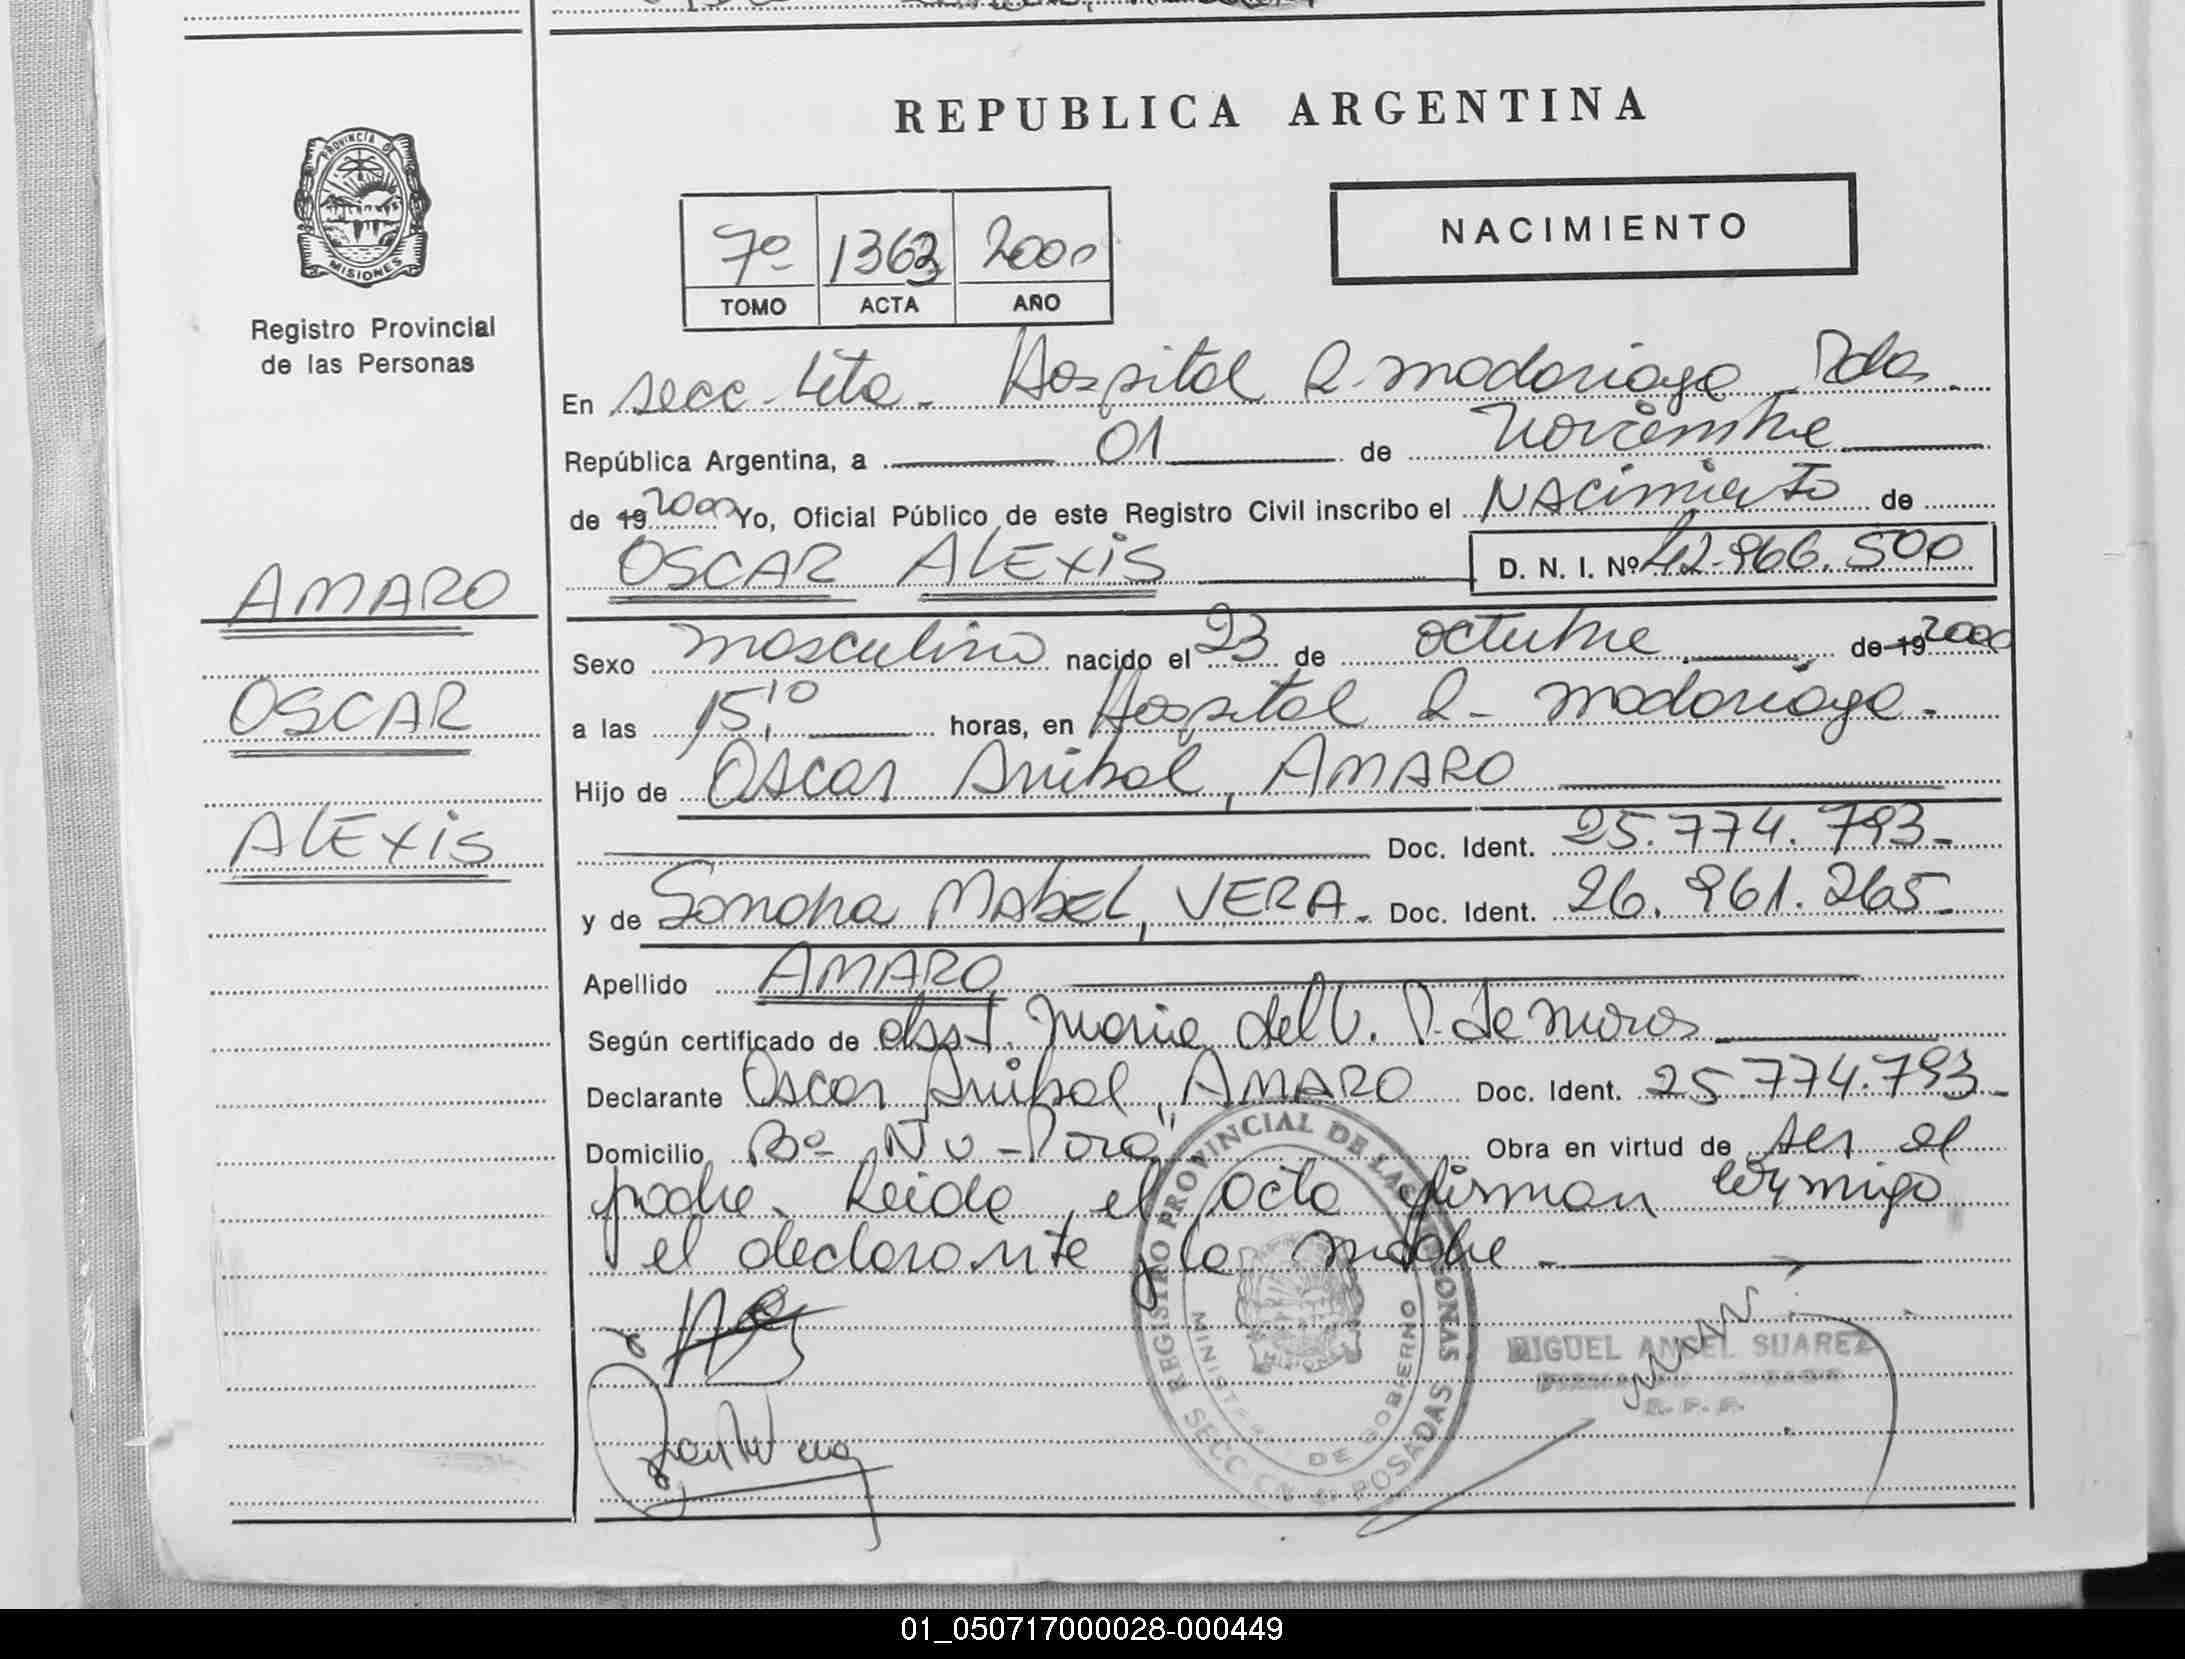 REPUBLICA ARGENTINA
PROVINCIA D
MISIONES
Registro Provincial
de las Personas
NACIMIENTO
7º 1363 2000
TOMO ACTA AÑO
En secc 4ta - Hospital R. Madariaga - Pdas.
República Argentina, a 01 de Noviembre
de 19 2000 Yo, Oficial Público de este Registro Civil inscribo el NAcimiento de
OSCAR ALExis D. N. I. Nº 42.966.500
AMARO
OSCAR
ALExis
Sexo masculino nacido el 23 de octubre de 19 2000
a las 15,10 horas, en Hospital R - Madariaga -
Hijo de Oscar Anibal, AMARO
Doc. Ident. 25.774.793-
y de Sandra MAbEL, VERA - Doc. Ident. 26.961.265-
Apellido AMARO
Según certificado de obst. Maria del V. P. de Miros
Declarante Oscar Anibal, AMARO Doc. Ident. 25.774.793-
Domicilio Bº Ñu-Pora" Obra en virtud de ser el
padre. Leida el acta firman conmigo
el declarante y la madre -
REGISTRO PROVINCIAL DE LAS PERSONAS
MINISTERIO DE GOBIERNO
POSADAS
MISIONES
MIGUEL ANGEL SUAREZ